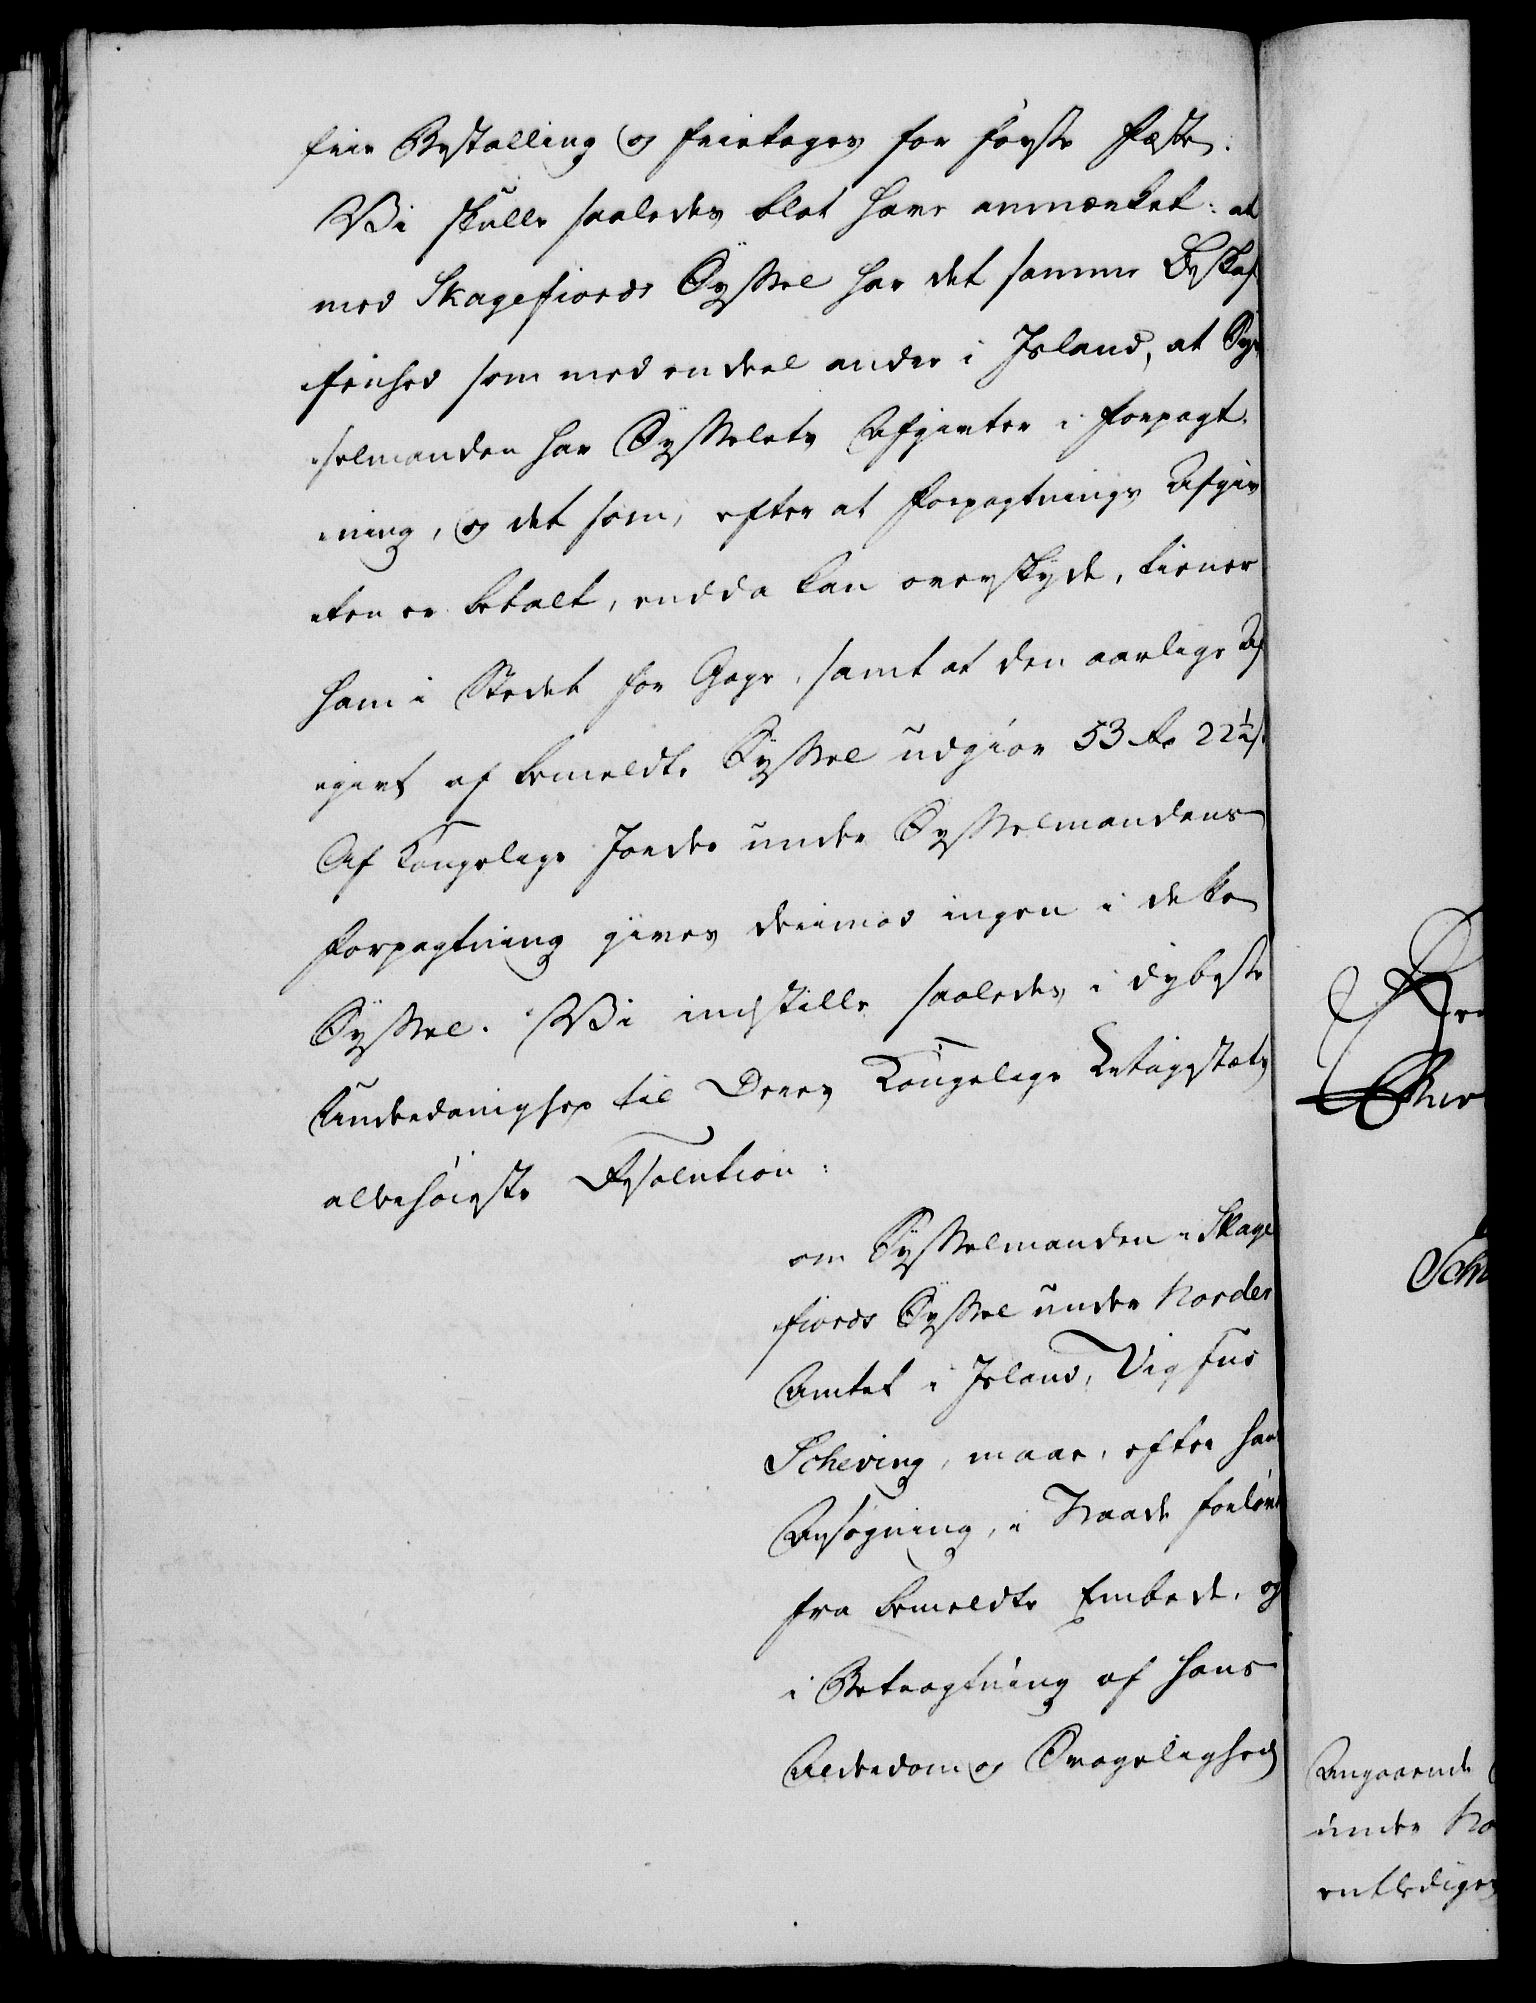 frie Bestalling og frietages for første Fæste.
Vi skulle saaledes blot have anmærket: at
med Skagefiords Syssel har det samme Beskaf-
fenhed som med endeel andre i Island, at Sys-
selmanden har Sysselets Afgivter i Forpagt-
ning, og det som, efter at Forpagtnings Afgiv-
ten er betalt, endda kan overskyde, tiener
ham i Stedet for Gage, samt at den aarlige Af-
givt af bemeldte Syssel udgiør 53 Rd 22½ s.
Af Kongelige Jorder under Sysselmandens
Forpagtning gives derimod ingen i dette
Syssel. Vi indstille saaledes i dybeste
Underdanighed til Deres Kongelige Majestæts
allerhøieste Resolution:
om Sysselmanden i Skage-
fiords Syssel under Norder
Amtet i Island, Vigfus
Scheving, maae, efter hans
Ansøgning, i Naade forløves
fra bemeldte Embede, og
i Betragtning af hans
Alderdom og Svagelighed
Schi
Angaaende
under No
entlediges